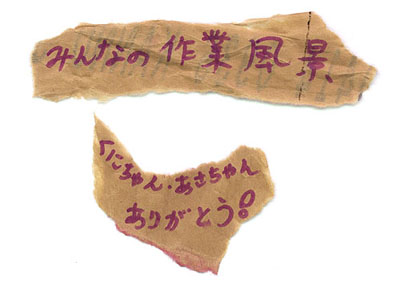 みんなの作業風景
くにちゃん・あさちゃん
ありがとう!